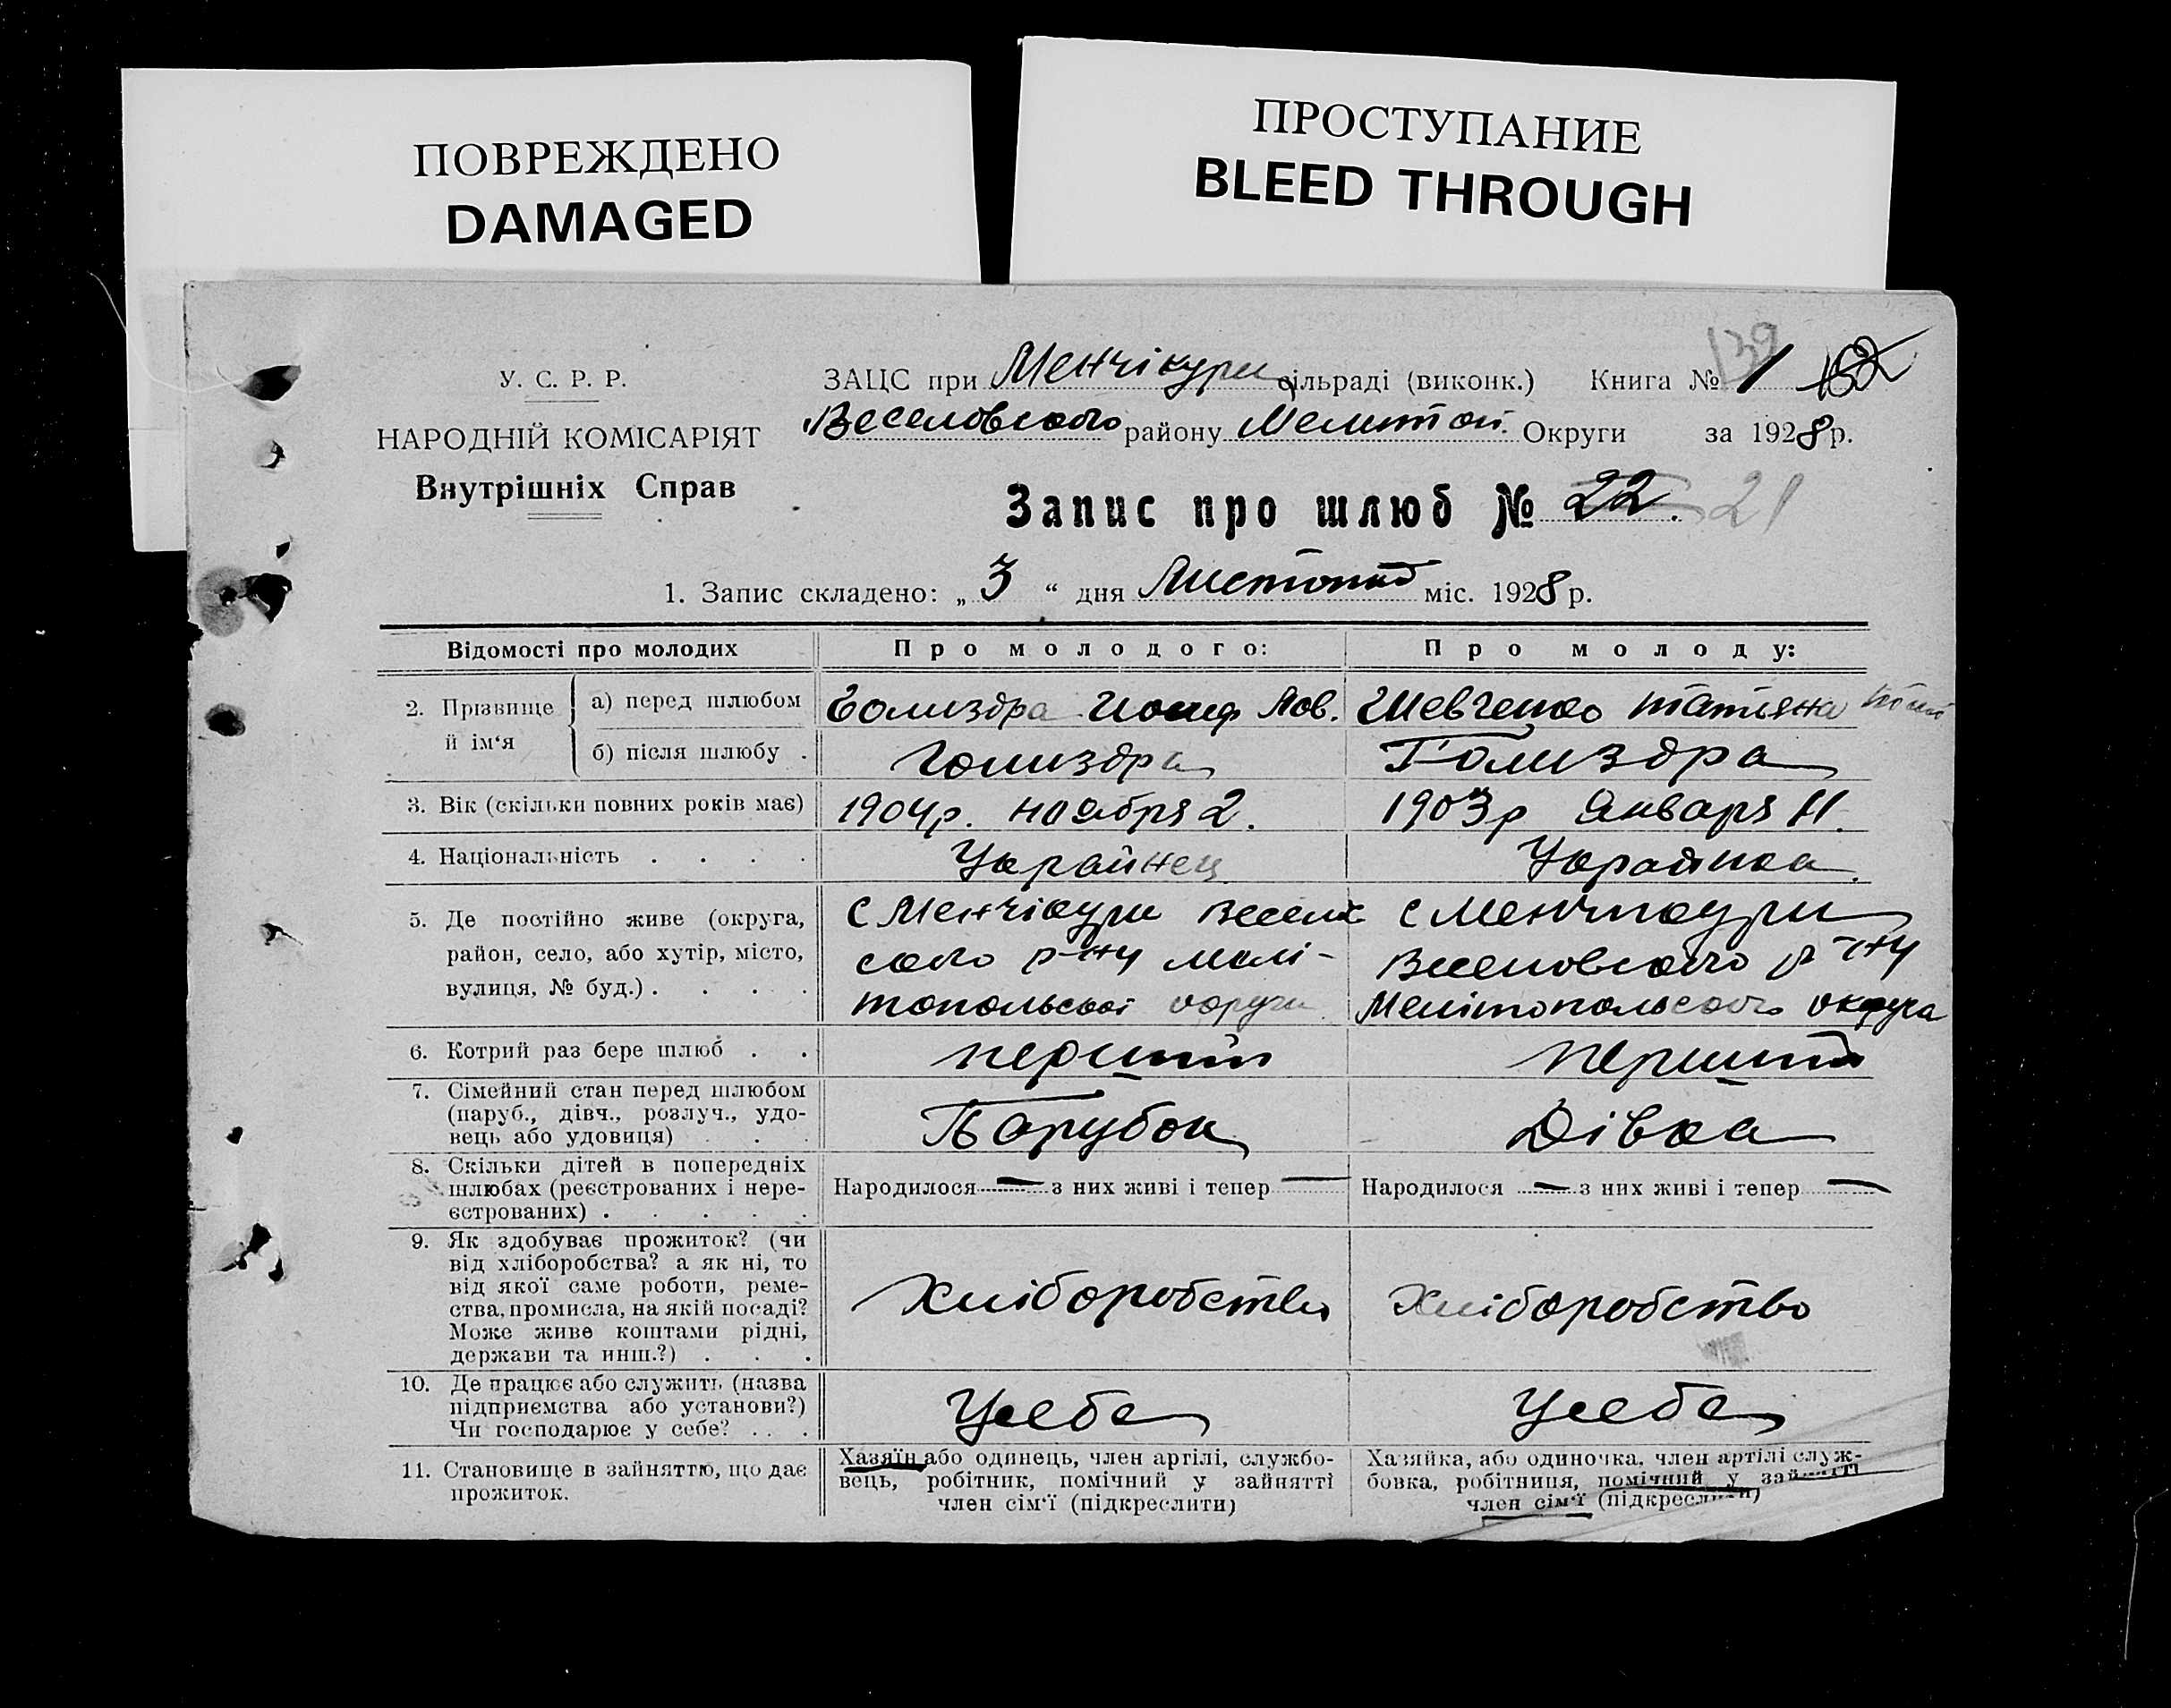 ПОВРЕЖДЕНО
DAMAGED
ПРОСТУПАНИЕ
BLEED THROUGH
139
У. С. Р. Р.
НАРОДНІЙ КОМІСАРІЯТ
Внутрішніх Справ
ЗАЦС при Менчікури сільраді (виконк.) Книга № 1
Веселовского району Мелитоп. Округи за 1928 р.
Запис про шлюб № 22. 21
1. Запис складено: „ 3 “ дня Листопад міс. 1928 р.
Відомості про молодих Про молодого: Про молоду:
2. Прізвище й ім‘я
а) перед шлюбом Голиздра Иосиф Яов. Шевченко Татьяна
б) після шлюбу . Голиздра Голиздра
3. Вік (скільки повних років має) 1904р. ноября 2. 1903р Января 11.
4. Національність . . . . Украйнец Украйнка.
5. Де постійно живе (округа,
район, село, або хутір, місто,
вулиця, № буд.) . . . .
с Менчікури Весели
ского р-ну мелі-
топольської округи
с Менчикури
Веселовского р-ну
Мелітопольского округа
6. Котрий раз бере шлюб . . перший перший
7. Сімейний стан перед шлюбом
(паруб., дівч., розлуч., удо-
вець або удовиця) . . .
Парубок Дівка
8. Скільки дітей в попередніх
шлюбах (реєстрованих і нере-
єстрованих) . . . . .
Народилося — з них живі і тепер — Народилося — з них живі і тепер —
9. Як здобуває прожиток? (чи
від хліборобства? а як ні, то
від якої саме роботи, реме-
ства, промисла, на якій посаді?
Може живе коштами рідні,
держави та инш.?) . . .
Хліборобство Хліборобство
10. Де працює або служить (назва
підприємства або установи?)
Чи господарює у себе? . . .
Усебе Усебе
11. Становище в зайняттю, що дає
прожиток.
Хазяїн або одинець, член артілі, службо-
вець, робітник, помічний у зайнятті
член сім‘ї (підкреслити)
Хазяйка, або одиночка, член артілі служ-
бовка, робітниця, помічний у зайнятті
член сім‘ї (підкреслити)